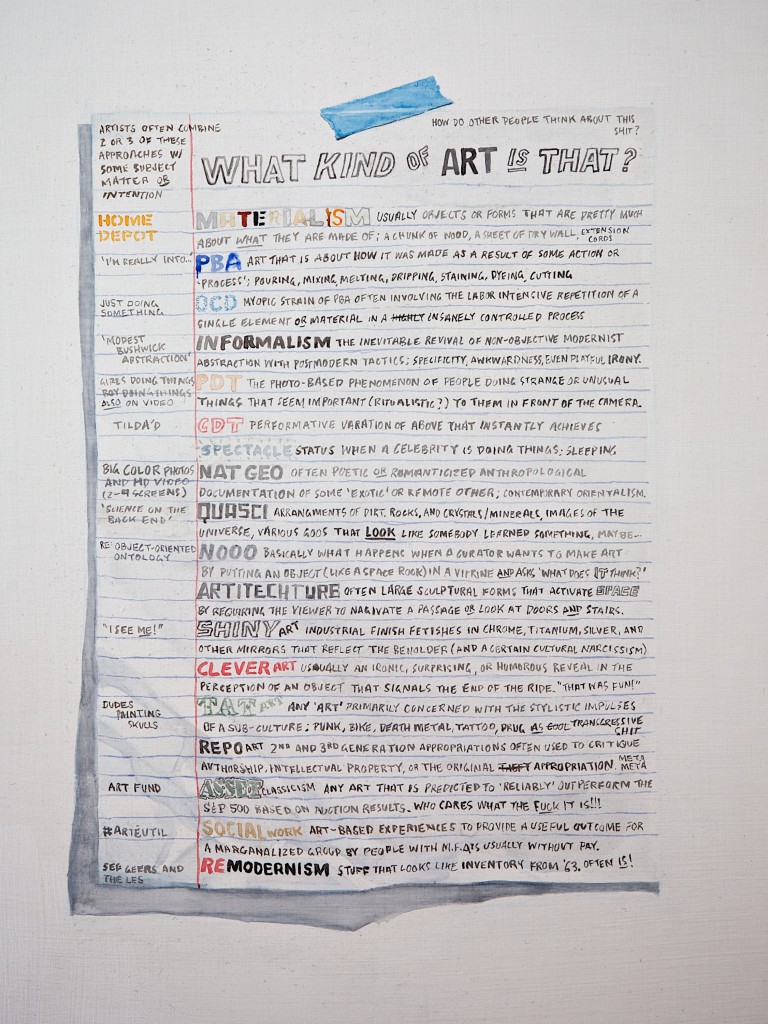 ARTISTS OFTEN COMBINE
2 OR 3 OF THESE
APPROACHES W/
SOME SUBJECT
MATTER OR
INTENTION
HOW DO OTHER PEOPLE THINK ABOUT THIS
SHIT?
WHAT KIND OF ART IS THAT?
HOME
DEPOT
MATERIALISM USUALLY OBJECTS OR FORMS THAT ARE PRETTY MUCH
ABOUT WHAT THEY ARE MADE OF; A CHUNK OF WOOD, A SHEET OF DRY WALL, EXTENSION
CORDS
'I'M REALLY INTO..'
PBA ART THAT IS ABOUT HOW IT WAS MADE AS A RESULT OF SOME ACTION OR
'PROCESS'; POURING, MIXING, MELTING, DRIPPING, STAINING, DYEING, CUTTING
JUST DOING
SOMETHING
OCD MYOPIC STRAIN OF PBA OFTEN INVOLVING THE LABOR INTENSIVE REPETITION OF A
SINGLE ELEMENT OR MATERIAL IN A HIGHLY INSANELY CONTROLLED PROCESS
'MODEST
BUSHWICK
ABSTRACTION'
INFORMALISM THE INEVITABLE REVIVAL OF NON-OBJECTIVE MODERNIST
ABSTRACTION WITH POSTMODERN TACTICS; SPECIFICITY, AWKWARDNESS, EVEN PLAYFUL IRONY.
GIRLS DOING THINGS
BOY DOING THINGS
ALSO ON VIDEO
PDT THE PHOTO-BASED PHENOMENON OF PEOPLE DOING STRANGE OR UNUSUAL
THINGS THAT SEEM IMPORTANT (RITUALISTIC?) TO THEM IN FRONT OF THE CAMERA.
TILDA'D
CDT PERFORMATIVE VARATION OF ABOVE THAT INSTANTLY ACHIEVES
SPECTACLE STATUS WHEN A CELEBRITY IS DOING THINGS: SLEEPING
BIG COLOR PHOTOS
AND HD VIDEO
(2-9 SCREENS)
NAT GEO OFTEN POETIC OR ROMANTICIZED ANTHROPOLOGICAL
DOCUMENTATION OF SOME 'EXOTIC' OR REMOTE OTHER; CONTEMPORARY ORIENTALISM.
'SCIENCE ON THE
BACK END'
QUASCI ARRANGMENTS OF DIRT, ROCKS, AND CRYSTALS/MINERALS, IMAGES OF THE
UNIVERSE, VARIOUS GOOS THAT LOOK LIKE SOMEBODY LEARNED SOMETHING, MAYBE...
RE: OBJECT-ORIENTED
ONTOLOGY
NOOO BASICALLY WHAT HAPPENS WHEN A CURATOR WANTS TO MAKE ART
BY PUTTING AN OBJECT (LIKE A SPACE ROCK) IN A VITRINE AND ASKS 'WHAT DOES IT THINK?'
ARTITECHTURE OFTEN LARGE SCULPTURAL FORMS THAT ACTIVATE SPACE
BY REQUIRING THE VIEWER TO NAGIVATE A PASSAGE OR LOOK AT DOORS AND STAIRS.
"I SEE ME!"
SHINY ART INDUSTRIAL FINISH FETISHES IN CHROME, TITANIUM, SILVER, AND
OTHER MIRRORS THAT REFLECT THE BEHOLDER (AND A CERTAIN CULTURAL NARCISSISM)
CLEVER ART USUALLY AN IRONIC, SURPRISING, OR HUMOROUS REVEAL IN THE
PERCEPTION OF AN OBJECT THAT SIGNALS THE END OF THE RIDE. "THAT WAS FUN!"
DUDES
PAINTING
SKULLS
TAT ART ANY 'ART' PRIMARILY CONCERNED WITH THE STYLISTIC IMPULSES
OF A SUB-CULTURE; PUNK, BIKE, DEATH METAL, TATTOO, DRUG AS COOL TRANSGRESSIVE
SHIT
REPO ART 2ND AND 3RD GENERATION APPROPRIATIONS OFTEN USED TO CRITIQUE
AUTHORSHIP, INTELLECTUAL PROPERTY, OR THE ORIGINAL THEFT APPROPRIATION. META
META
ART FUND
ASSET CLASSICISM ANY ART THAT IS PREDICTED TO 'RELIABLY' OUTPERFORM THE
S&P 500 BASED ON AUCTION RESULTS. WHO CARES WHAT THE FUCK IT IS!!!
#ARTEÚTIL
SOCIAL WORK ART-BASED EXPERIENCES TO PROVIDE A USEFUL OUTCOME FOR
A MARGANALIZED GROUP BY PEOPLE WITH M.F.A.'S USUALLY WITHOUT PAY.
SEP GEERS AND
THE LES
REMODERNISM STUFF THAT LOOKS LIKE INVENTORY FROM '63. OFTEN IS!